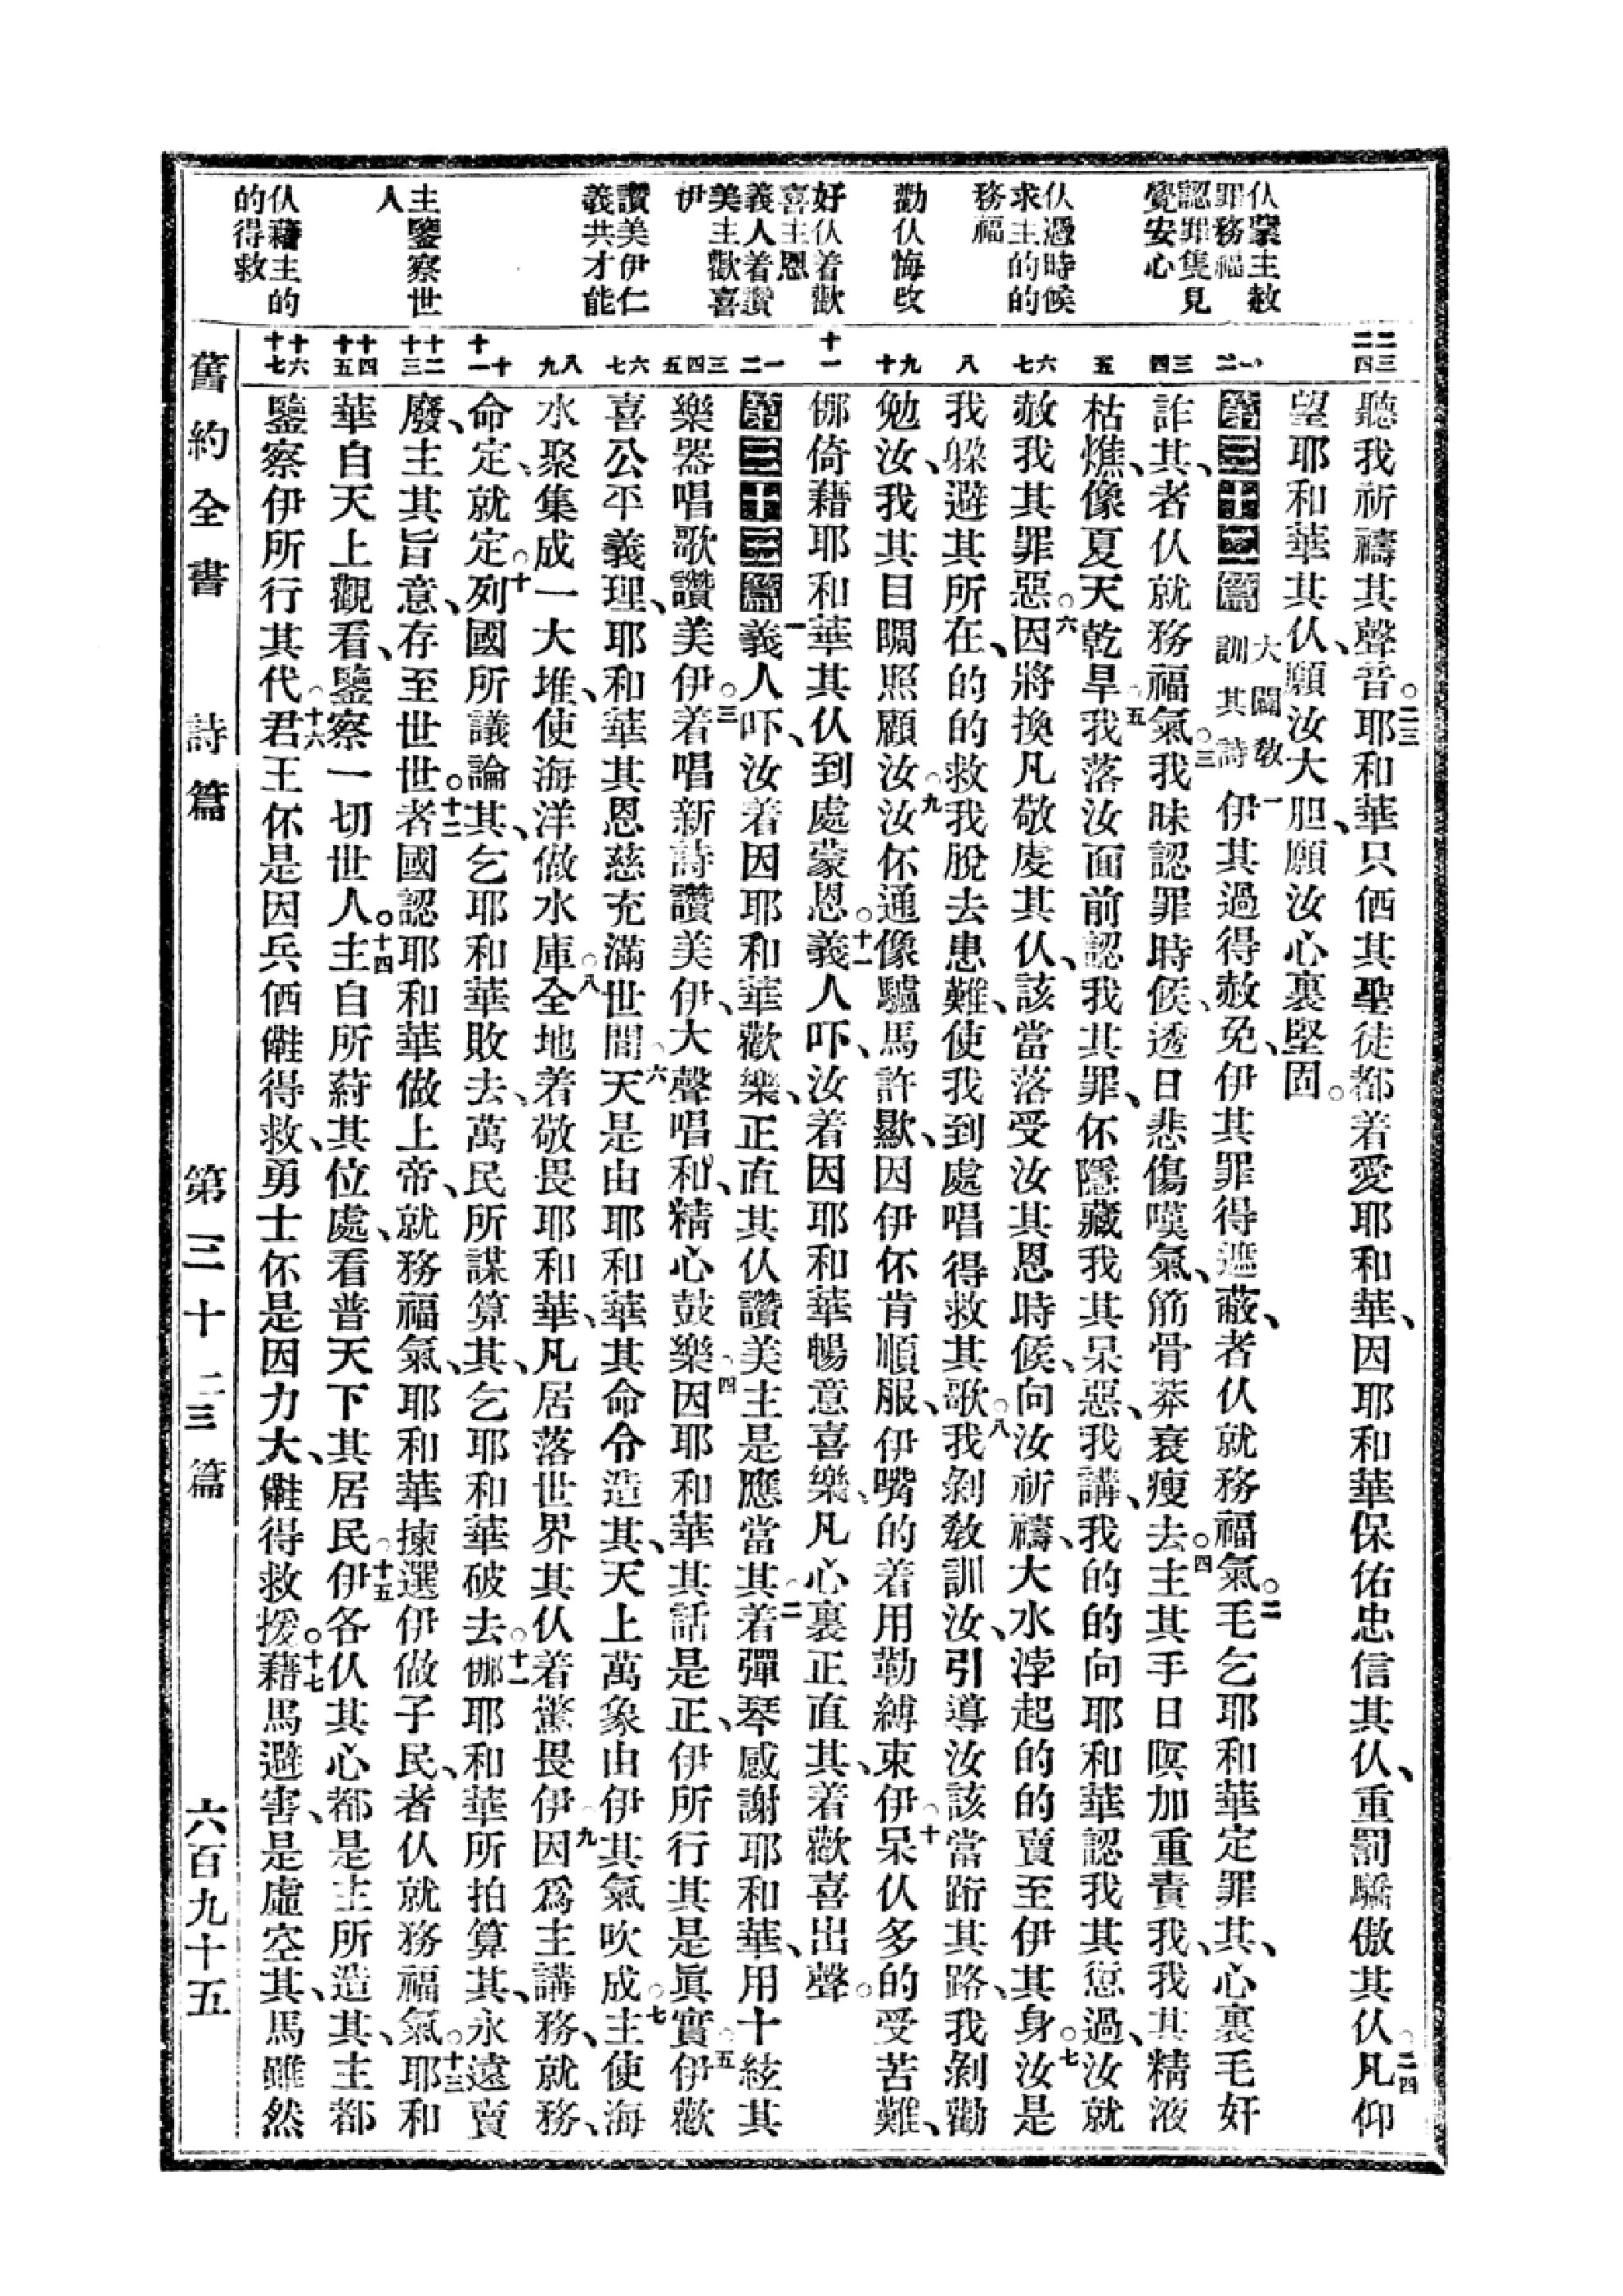 仈蒙主赦
罪務福
認罪隻見
覺安心
仈憑時候
求主的的
務福
勸仈悔改
好仈着歡
喜主恩
義人着讚
美主歡喜
伊
讚美伊仁
義共才能
主鑒察世
人
仈藉主的
的得救
二三
二四
一
二
三
四
五
六
七
八
九
十
十一
一
二
三
四
五
六
七
八
九
十
十一
十二
十三
十四
十五
十六
十七
聽我祈禱其聲音。二三耶和華只佰其聖徒都着愛耶和華、因耶和華保佑忠信其仈、重罰驕傲其仈。二四凡仰
望耶和華其仈、願汝大胆、願汝心裏堅固。
第三十二篇 大闢敎訓其詩 一伊其過得赦免、伊其罪得遮蔽、者仈就務福氣。二毛乞耶和華定罪其、心裏毛奸
詐其、者仈就務福氣。三我昧認罪時候、透日悲傷嘆氣、筋骨莽衰瘦去。四主其手日暝加重責我、我其精液
枯燋、像夏天乾旱。五我落汝面前認我其罪、伓隱藏我其呆惡、我講、我的的向耶和華認我其愆過、汝就
赦我其罪惡。六因將換凡敬虔其仈、該當落受汝其恩時候、向汝祈禱、大水浡起的的賣至伊其身。七汝是
我躲避其所在、的的救我脫去患難、使我到處唱得救其歌。八我剝敎訓汝、引導汝該當跅其路、我剝勸
勉汝、我其目睭照顧汝。九汝伓通像驢馬許歟、因伊伓肯順服、伊嘴的着用勒縛束伊。十呆仈多的受苦難、
倻倚藉耶和華其仈到處蒙恩。十一義人吓、汝着因耶和華暢意喜樂、凡心裏正直其、着歡喜出聲。
第三十三篇 一義人吓、汝着因耶和華歡樂、正直其仈讚美主是應當其。二着彈琴感謝耶和華、用十絃其
樂器唱歌讚美伊。三着唱新詩讚美伊、大聲唱和、精心鼓樂。四因耶和華其話是正、伊所行其是眞實。五伊歡
喜公平義理、耶和華其恩慈充滿世間。六天是由耶和華其命令造其、天上萬象由伊其氣吹成。七主使海
水聚集成一大堆、使海洋做水庫。八全地着敬畏耶和華、凡居落世界其仈着驚畏伊。九因爲主講務、就務、
命定、就定。十列國所議論其、乞耶和華敗去、萬民所謀算其、乞耶和華破去。十一倻耶和華所拍算其、永遠賣
廢、主其旨意、存至世世。十二者國認耶和華做上帝、就務福氣、耶和華揀選伊做子民、者仈就務福氣。十三耶和
華自天上觀看、鑒察一切世人。十四主自所蒔其位處、看普天下其居民。十五伊各仈其心都是主所造其、主都
鑒察伊所行其代。十六君王伓是因兵佰儺得救、勇士伓是因力大、儺得救援。十七藉馬避害、是虛空其、馬雖然
舊約全書 詩篇 第三十二三篇 六百九十五